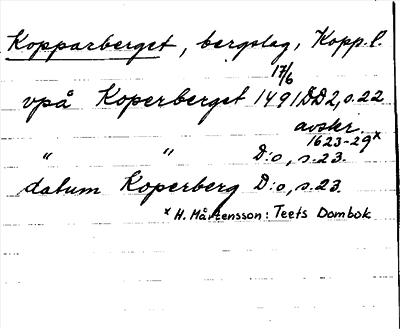 Kopparberget, bergslag, Kopp. l.
17/6
vpå Koperberget 1491 DD2, s.22
avskr.
1623-29x
" " D:o, s.23.
datum Koperberg D:o, s.23.
x H. Mårtensson: Teets Dombok